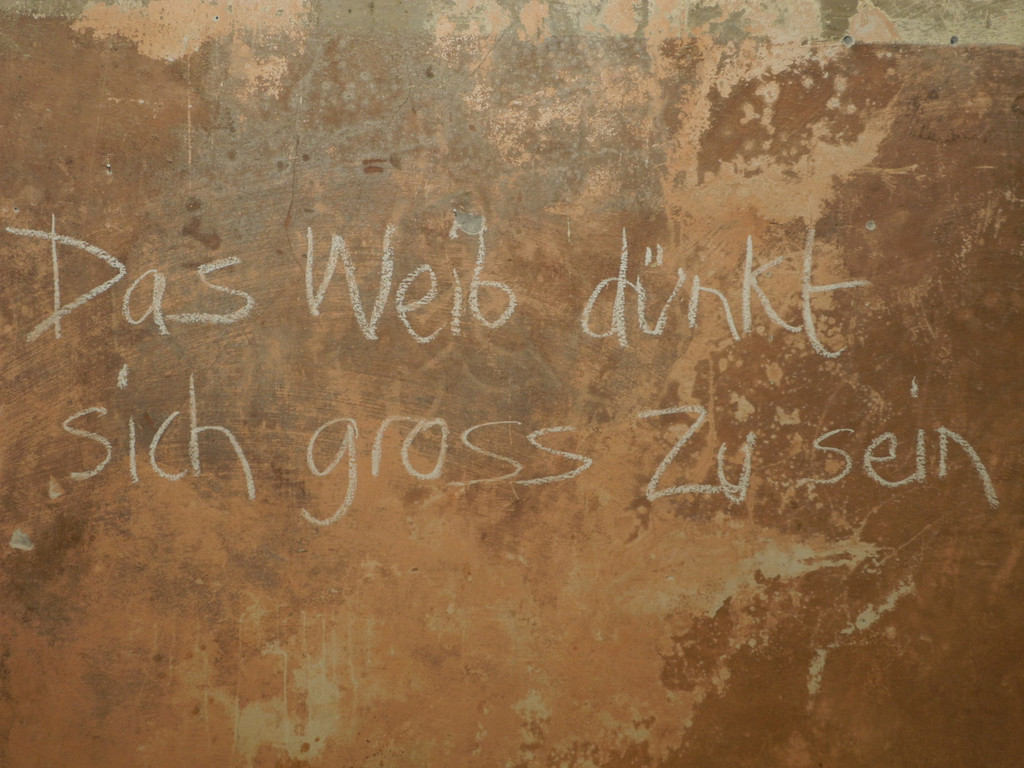 Das Weib dünkt
sich gross zu sein